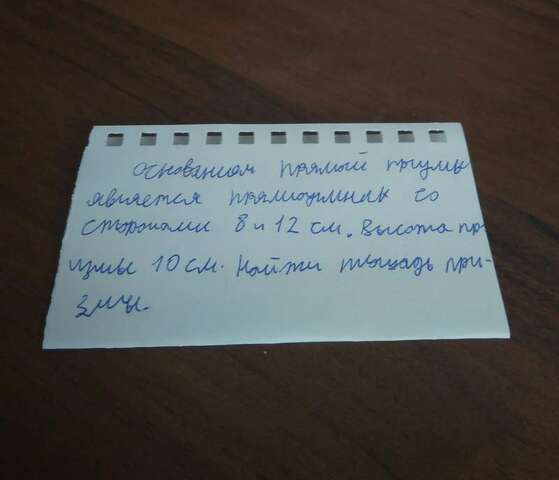 Основанием прямой призмы
является прямоугольник со
сторонами 8 и 12 см. Высота пр
измы 10 см. Найти площадь при-
змы.